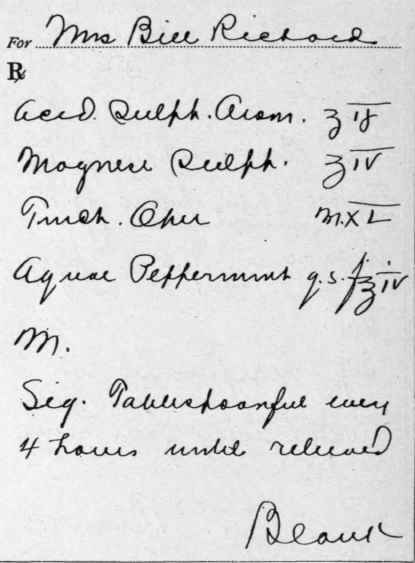 For Mrs Bill Richard
℞
Acid. Sulph. Arom. ʒ ij
Magnesii Sulph. ʒ iv
Tinct. Opii m. XL
Aquae Peppermint q.s. f℥ iv
M.
Sig. Tablespoonful every
4 hours until relieved
Blank